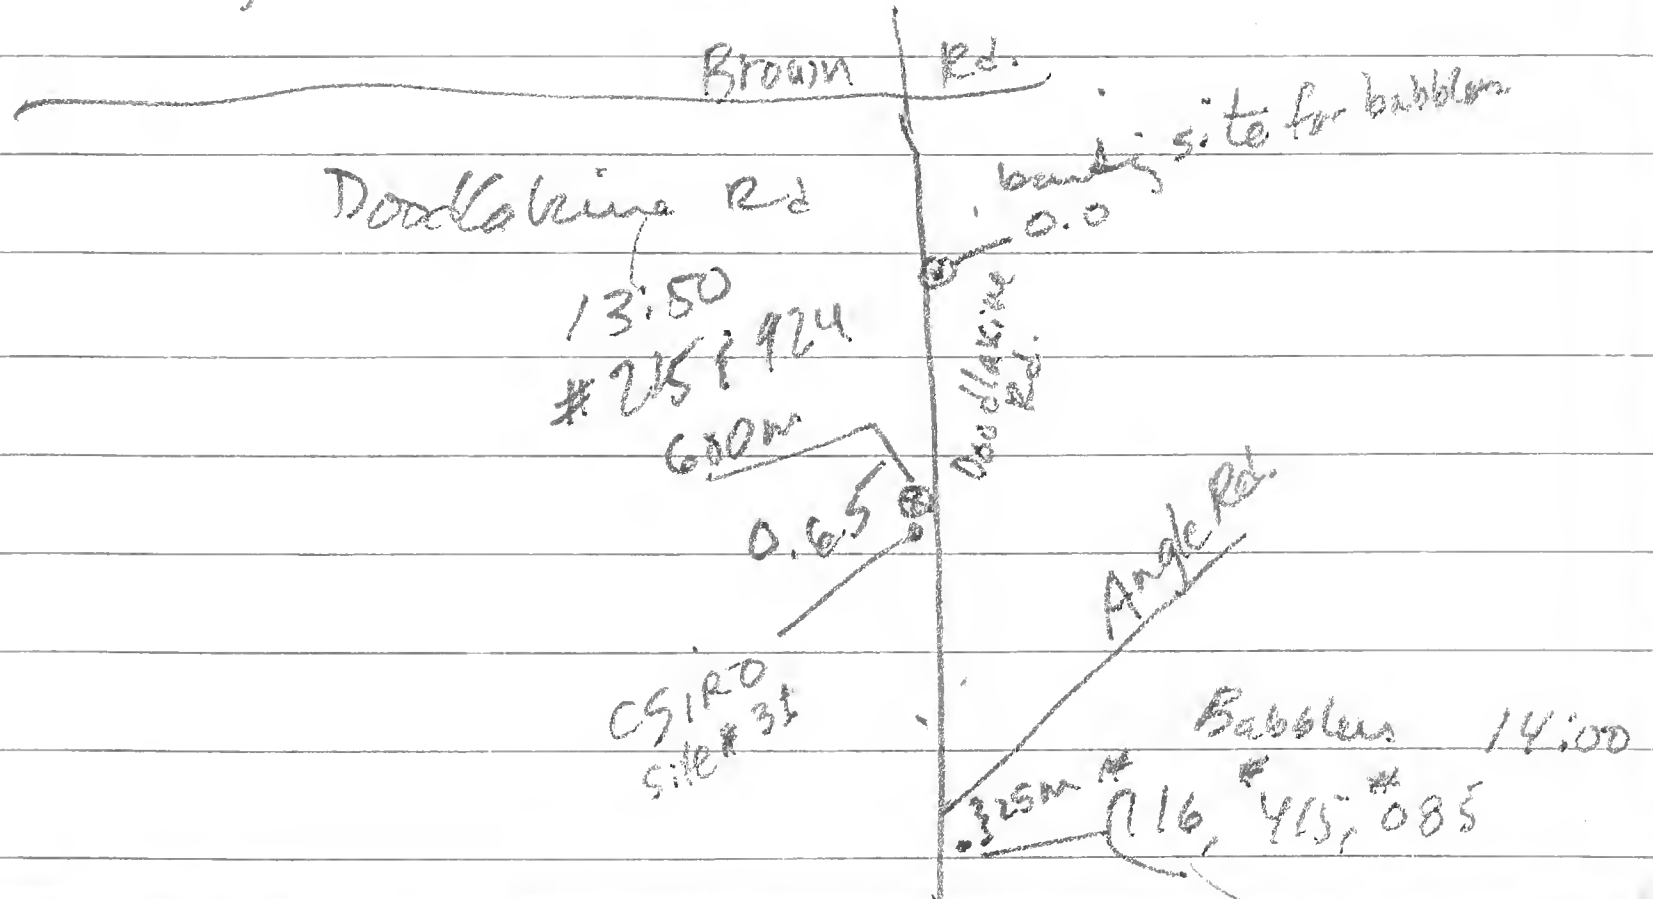 Brown Rd.
banding site for babblers
0.0
Doodlakine Rd
13:50
#215 & 924
600m
0.65
Doodlakine
Rd.
Angle Rd.
CSIRO
site #31
Babblers 14:00
25m #116, #415, #085